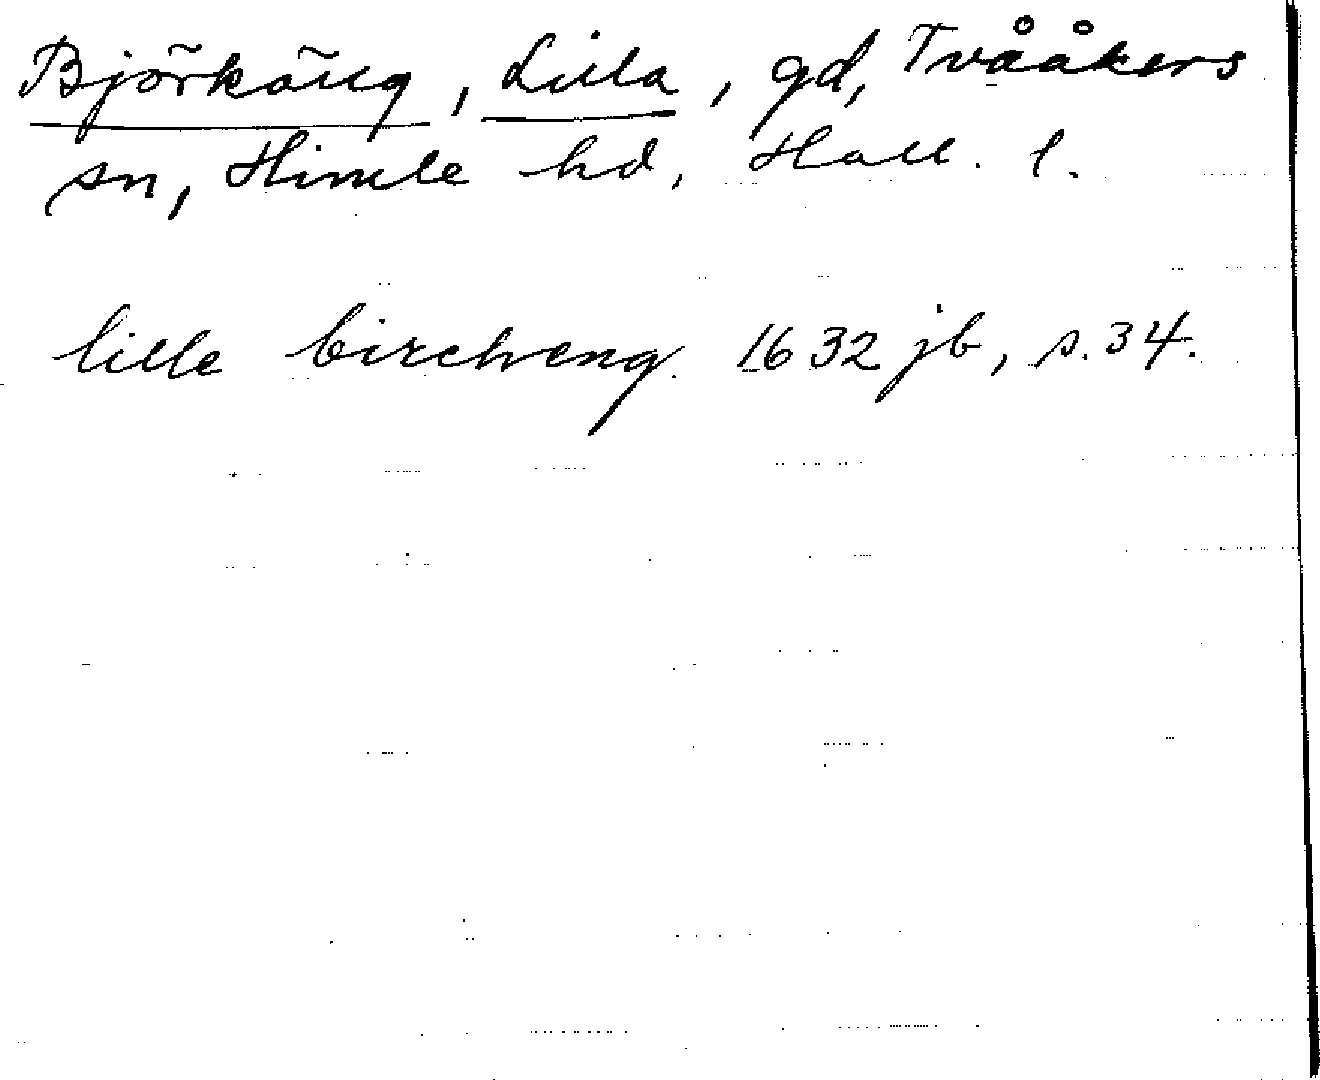 Björkäng, Lilla, gd, Tvååkers
sn, Himle hd, Hall. l.
lille bircheng. 1632 jb, s. 34.